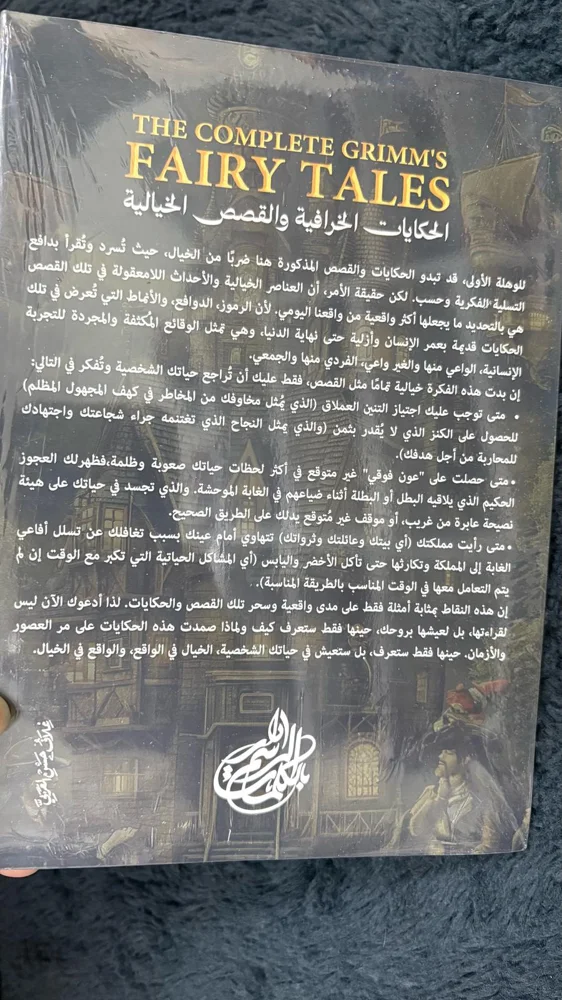 THE COMPLETE GRIMM'S
FAIRY TALES
الحكايات الخرافية والقصص الخيالية
للوهلة الأولى، قد تبدو الحكايات والقصص المذكورة هنا ضربًا من الخيال، حيث تُسرد وتُقرأ بدافع
التسلية الفكرية وحسب. لكن حقيقة الأمر، أن العناصر الخيالية والأحداث اللامعقولة في تلك القصص
هي بالتحديد ما يجعلها أكثر واقعية من واقعنا اليومي. لأن الرموز، الدوافع، والأنماط التي تُعرض في تلك
الحكايات قديمة بعمر الإنسان وأزلية حتى نهاية الدنيا، وهي تمثل الوقائع المُكثفة والمجردة للتجربة
الإنسانية، الواعي منها والغير واعي، الفردي منها والجمعي.
إن بدت هذه الفكرة خيالية تمامًا مثل القصص، فقط عليك أن تُراجع حياتك الشخصية وتُفكر في التالي:
• متى توجب عليك اجتياز التنين العملاق (الذي يُمثل مخاوفك من المخاطر في كهف المجهول المظلم)
للحصول على الكنز الذي لا يُقدر بثمن (والذي يمثل النجاح الذي تغتنمه جراء شجاعتك واجتهادك
للمحاربة من أجل هدفك).
• متى حصلت على "عون فوقي" غير متوقع في أكثر لحظات حياتك صعوبة وظلمة، فظهر لك العجوز
الحكيم الذي يلاقيه البطل أو البطلة أثناء ضياعهم في الغابة الموحشة. والذي تجسد في حياتك على هيئة
نصيحة عابرة من غريب، أو موقف غير مُتوقع يدلك على الطريق الصحيح.
• متى رأيت مملكتك (أي بيتك وعائلتك وثرواتك) تتهاوى أمام عينك بسبب تغافلك عن تسلل أفاعي
الغابة إلى المملكة وتكارثها حتى تأكل الأخضر واليابس (أي المشاكل الحياتية التي تكبر مع الوقت إن لم
يتم التعامل معها في الوقت المناسب بالطريقة المناسبة).
إن هذه النقاط بمثابة أمثلة فقط على مدى واقعية وسحر تلك القصص والحكايات. لذا أدعوك الآن ليس
لقراءتها، بل لعيشها بروحك، حينها فقط ستعرف كيف ولماذا صمدت هذه الحكايات على مر العصور
والأزمان. حينها فقط ستعرف، بل ستعيش في حياتك الشخصية، الخيال في الواقع، والواقع في الخيال.